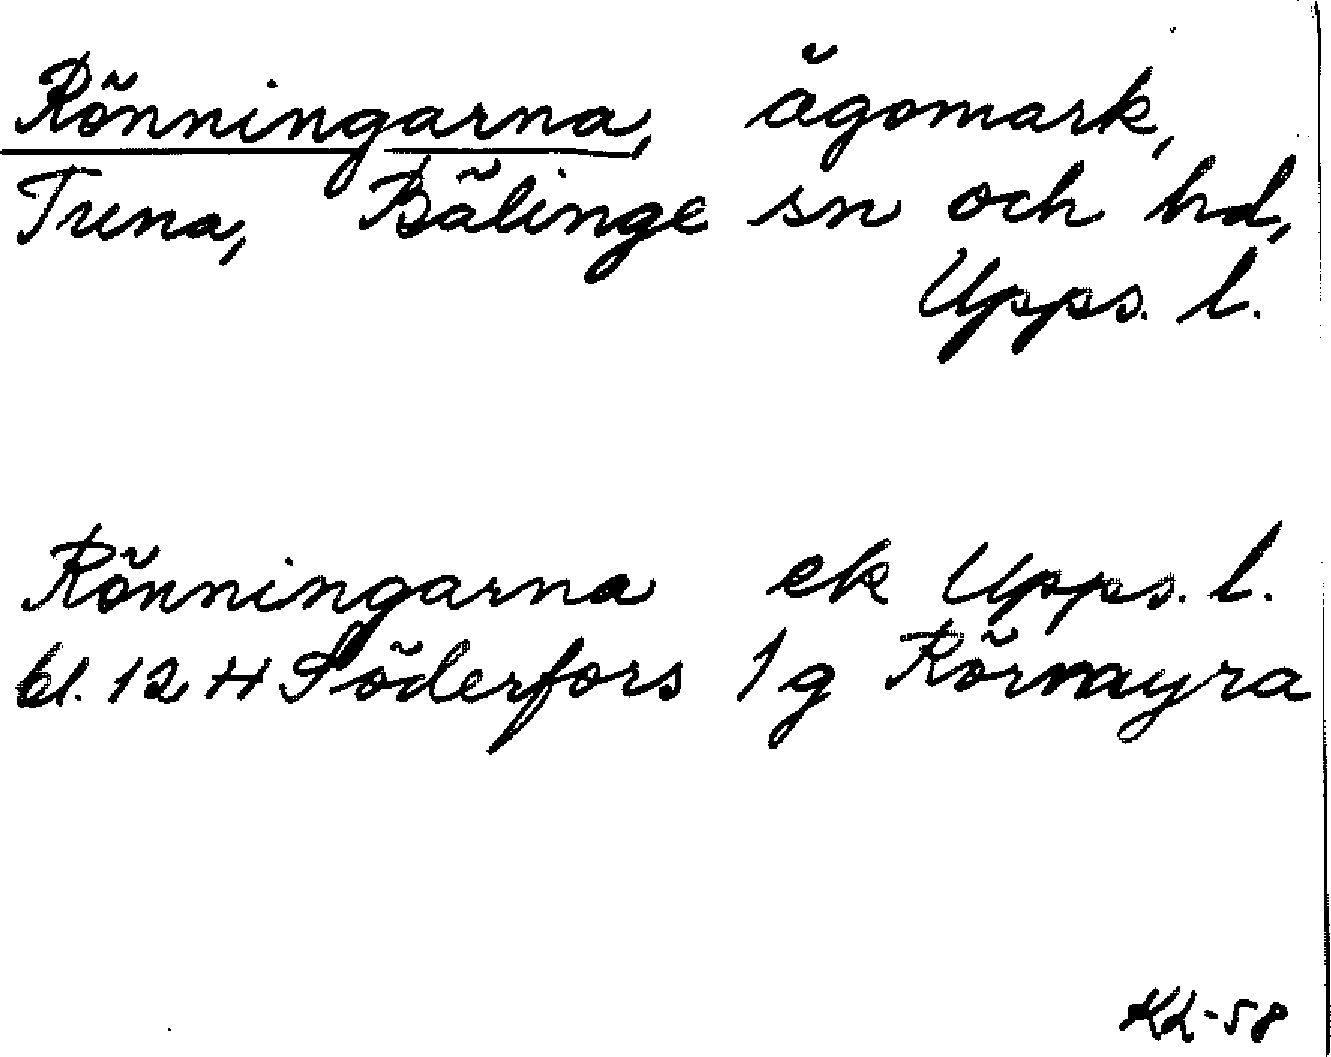 Rönningarna, ägomark,
Tuna, Bälinge sn och hd,
Upps. l.
Rönningarna ek Upps. l.
bl. 12 H Söderfors 1 g Rörmyra
KL-58